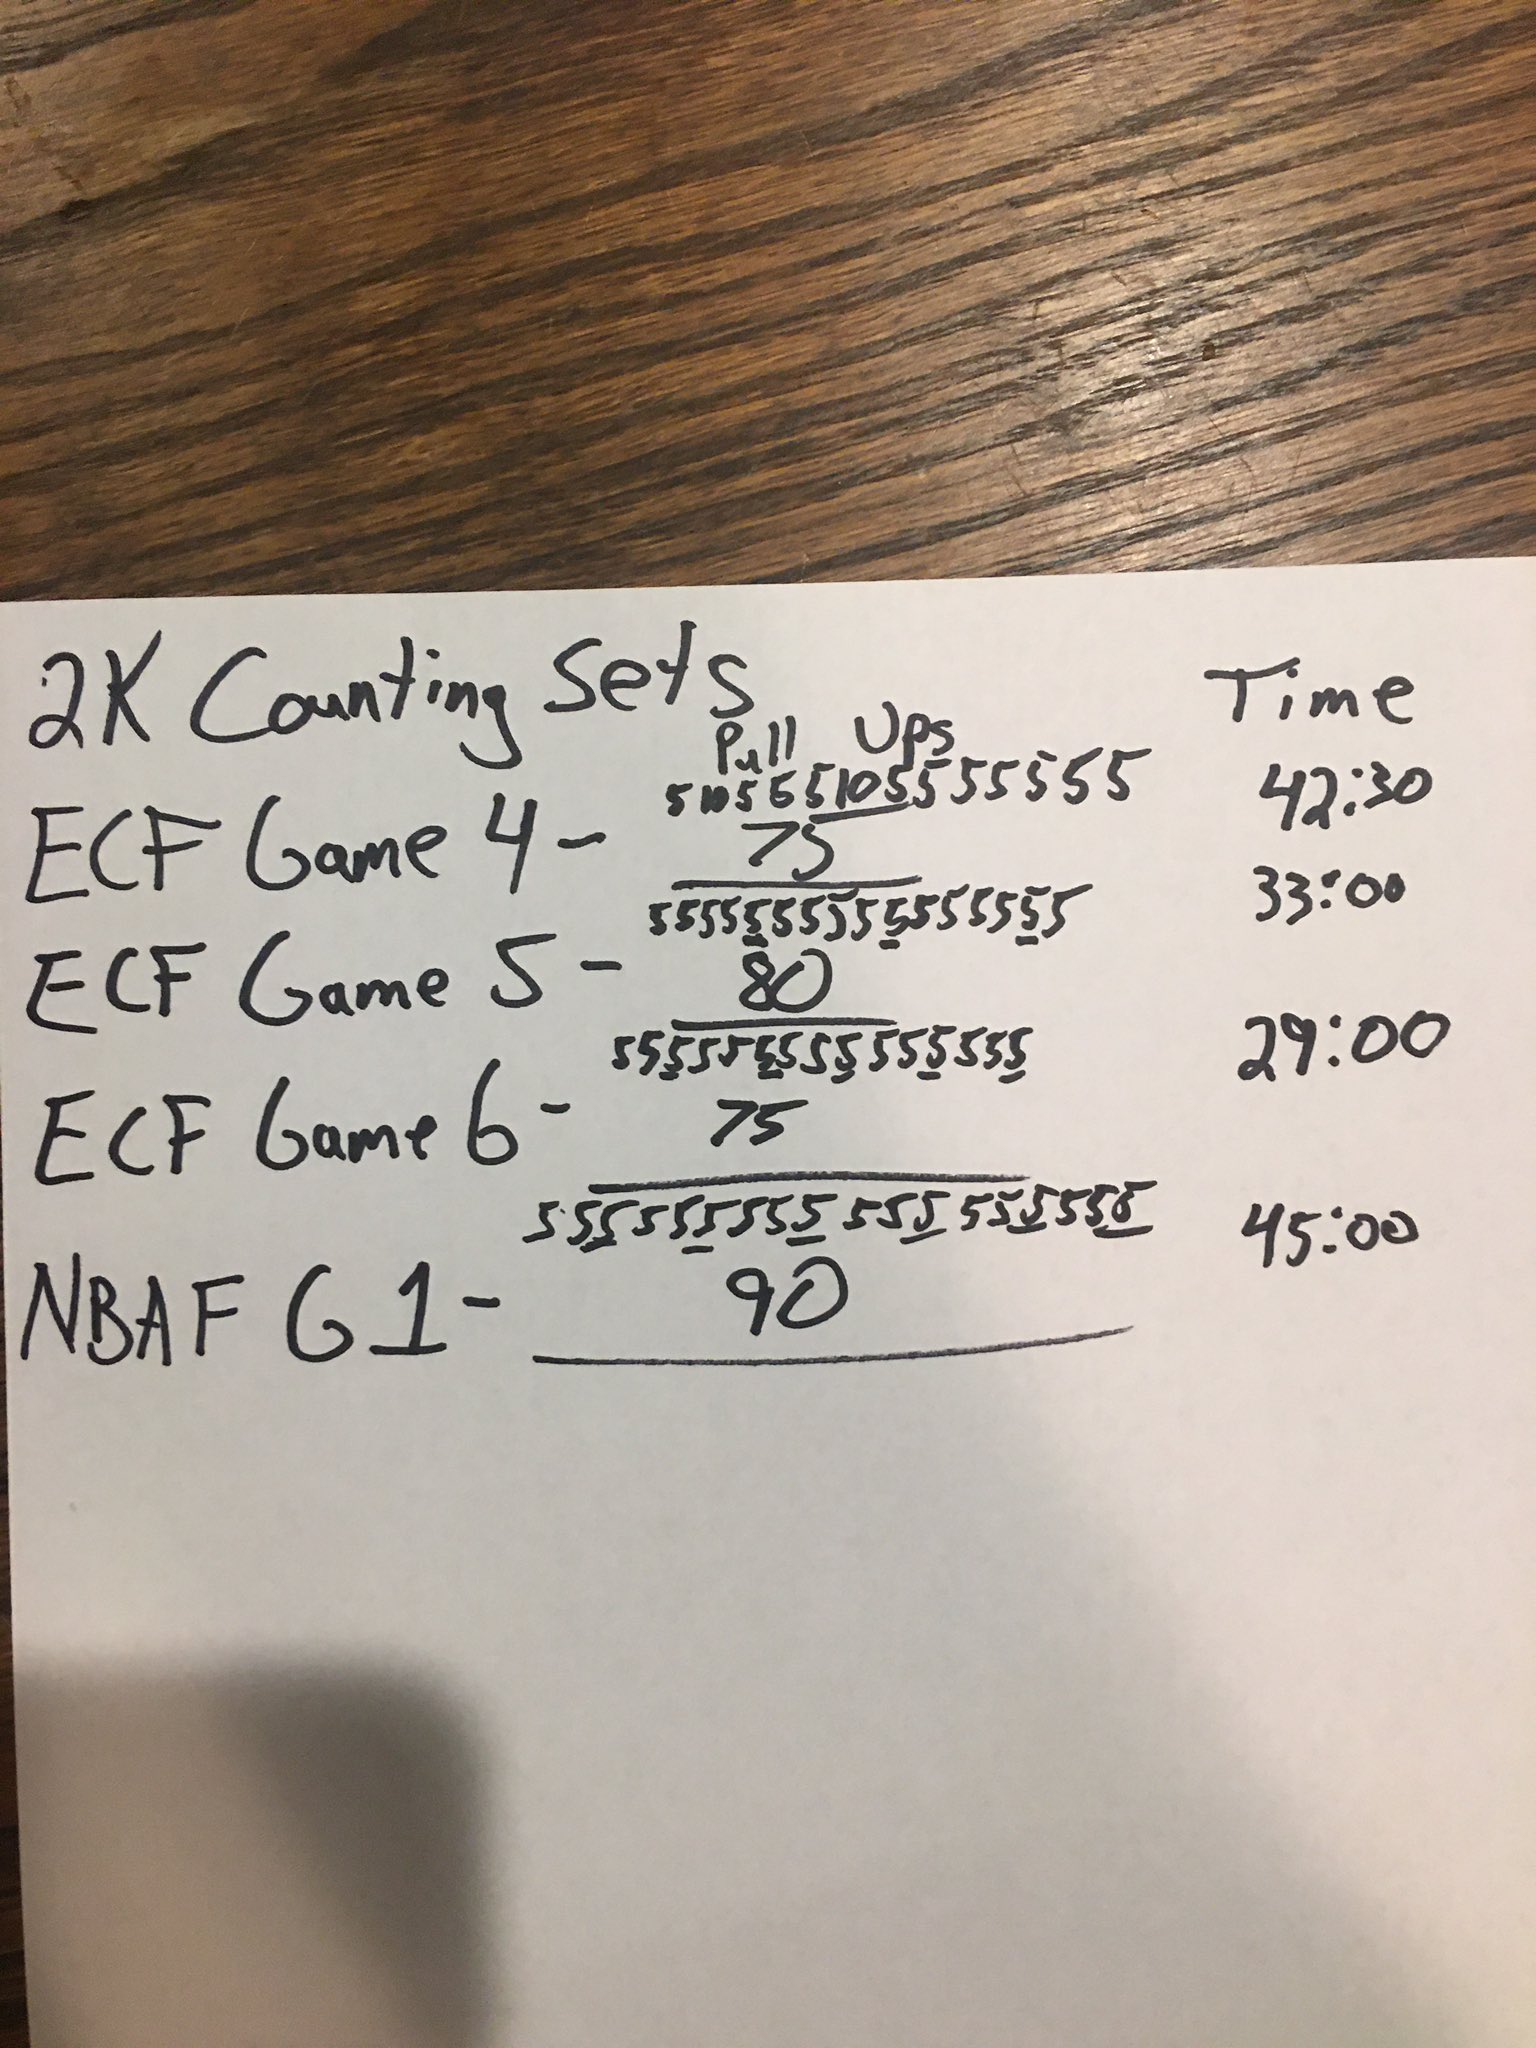 2K Counting Sets
Time
Pull Ups
5 10 5 5 5 10 5 5 5 5 5 5 5
42:30
ECF Game 4 - 75
5 5 5 5 5 5 5 5 5 5 5 5 5 5 5 5
33:00
ECF Game 5 - 80
5 5 5 5 5 5 5 5 5 5 5 5 5 5 5
29:00
ECF Game 6 - 75
5 5 5 5 5 5 5 5 5 5 5 5 5 5 5 5 5 5
45:00
NBAF G1 - 90